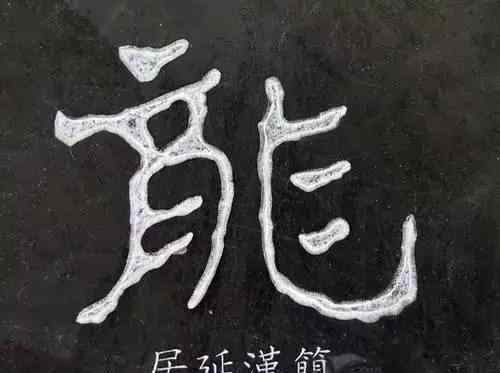 龍
居延漢簡